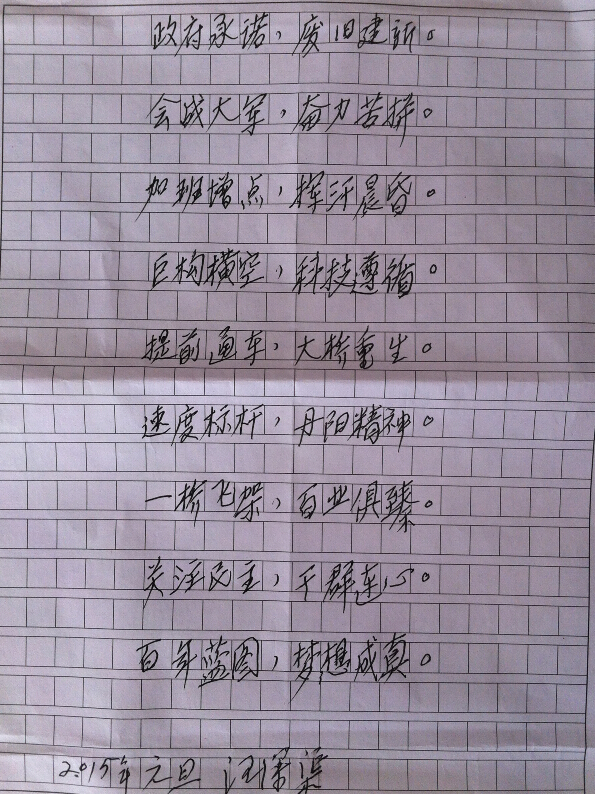 政府承诺，废旧建新。
会战大军，奋力苦拼。
加班增点，挥汗晨昏。
巨构横空，科技遵循。
提前通车，大桥重生。
速度标杆，丹阳精神。
一桥飞架，百业俱臻。
关注民主，干群连心。
百年蓝图，梦想成真。
2015年 元旦 汪深渠